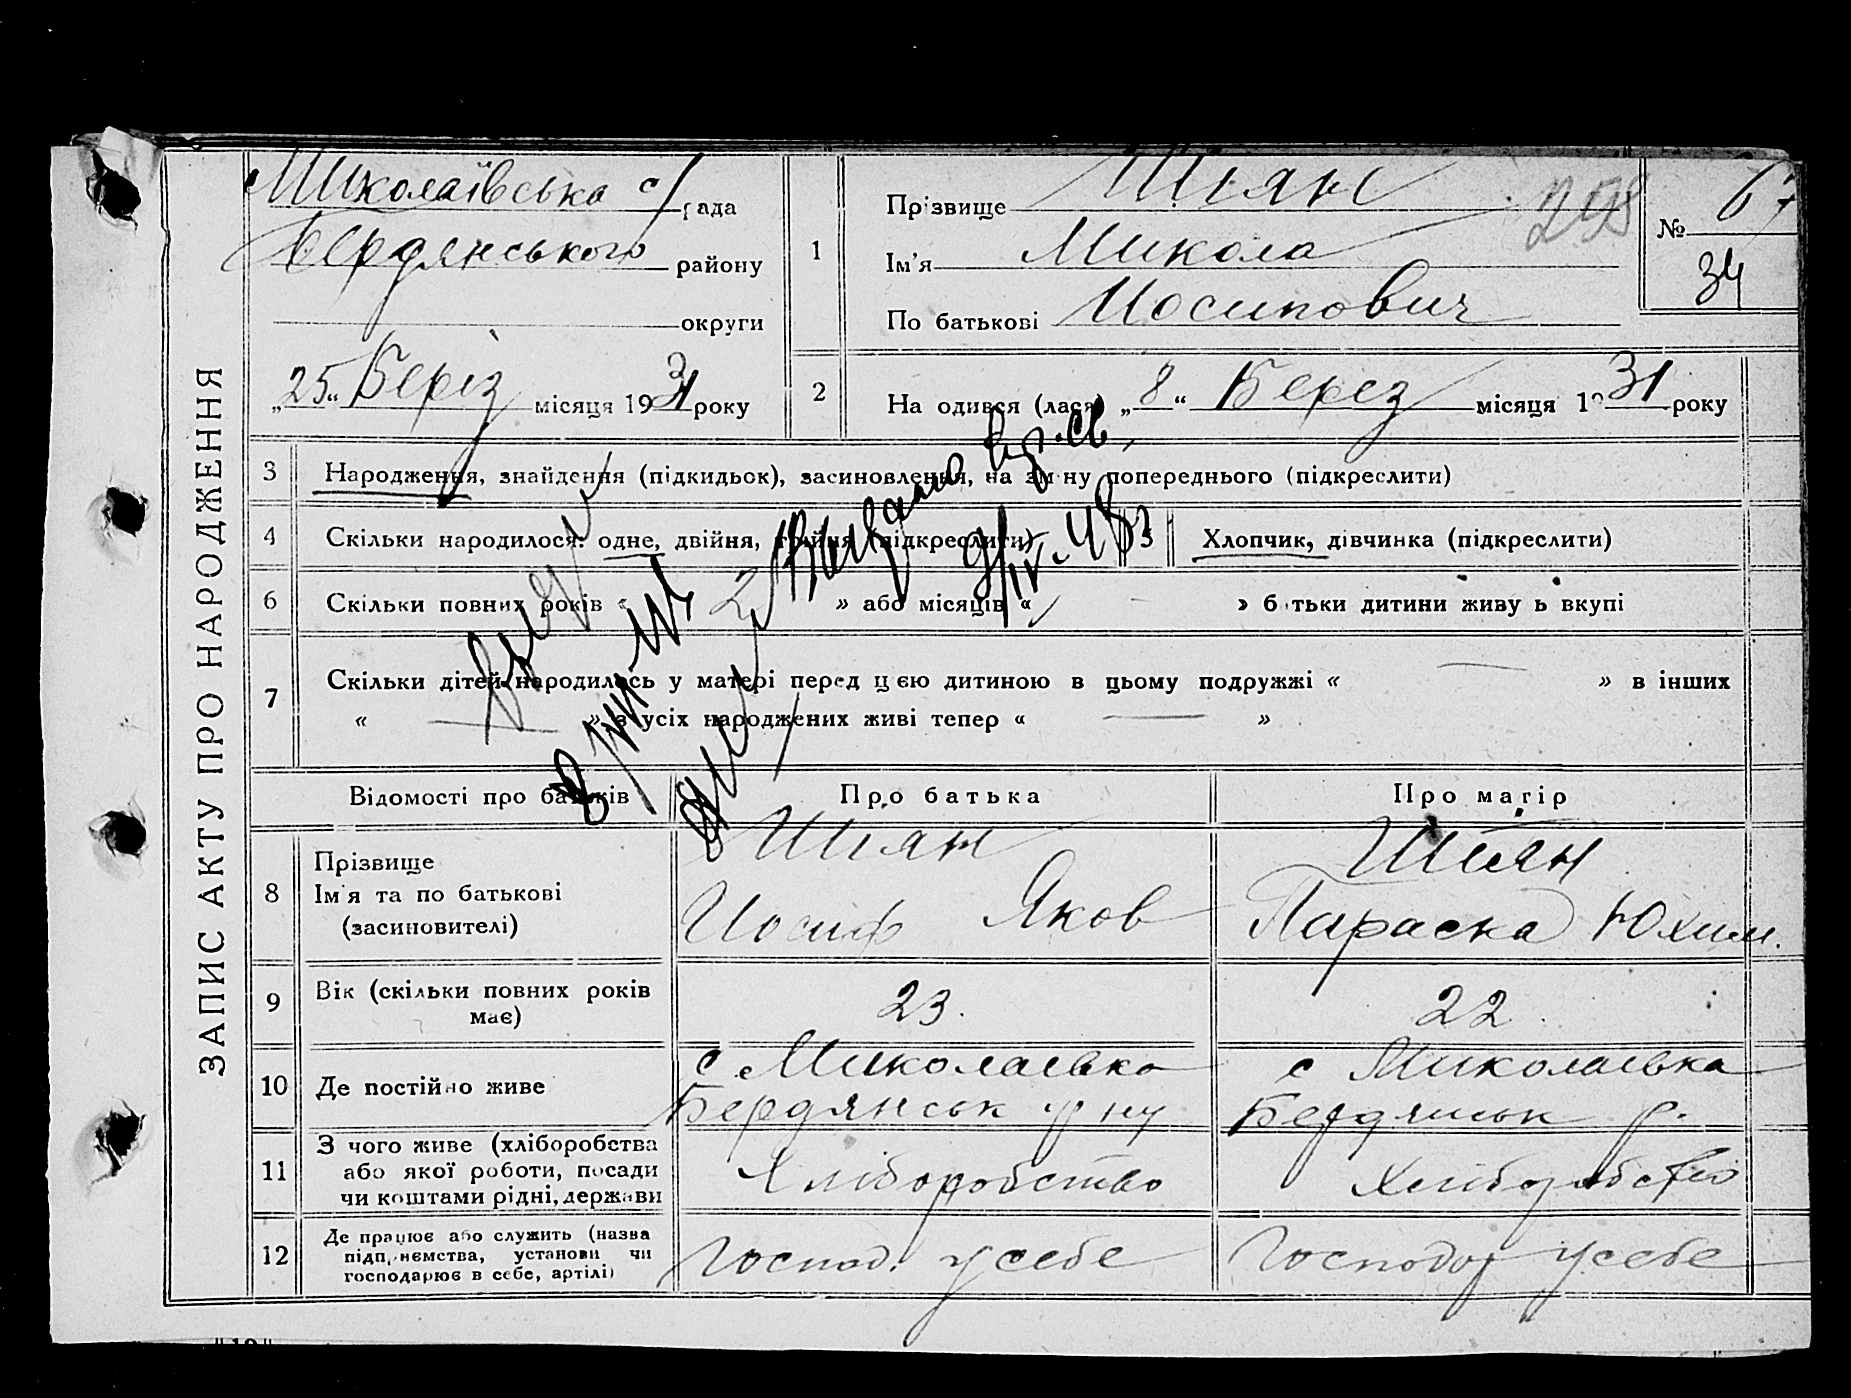 ЗАПИС АКТУ ПРО НАРОДЖЕННЯ
Миколаївська с/рада
Бердянського району
округи
„25“ Беріз місяця 1931 року
1
Прізвище Шиян
Ім'я Микола
По батькові Иосипович
№ 67
34
2
На одився (лася) „8“ Берез місяця 1931 року
3 Народження, знайдення (підкидьок), засиновлення, на зміну попереднього (підкреслити)
4 Скільки народилося: одне, двійня, трійня (підкреслити)
Хлопчик, дівчинка (підкреслити)
6 Скільки повних років « 2 » або місяців « » батьки дитини живуть вкупі
7 Скільки дітей народилось у матері перед цією дитиною в цьому подружжі « — » в інших
« — » з усіх народжених живі тепер « — »
Видано
9/IV-48
Відомості про батьків Про батька Про матір
8 Прізвище Шиян Шиян
Ім'я та по батькові Иосиф Яков Параска Юхим.
(засиновителі)
9 Вік (скільки повних років має) 23. 22.
10 Де постійно живе с. Миколаєвка с Миколаєвка
Бердянськ р ну Бердянськ р.
11 З чого живе (хліборобства або якої роботи, посади чи коштами рідні, держави Хліборобство Хліборобство
12 Де працює або служить (назва підприємства, установи чи господарює в себе, артілі) Господ. у себе Господар у себе